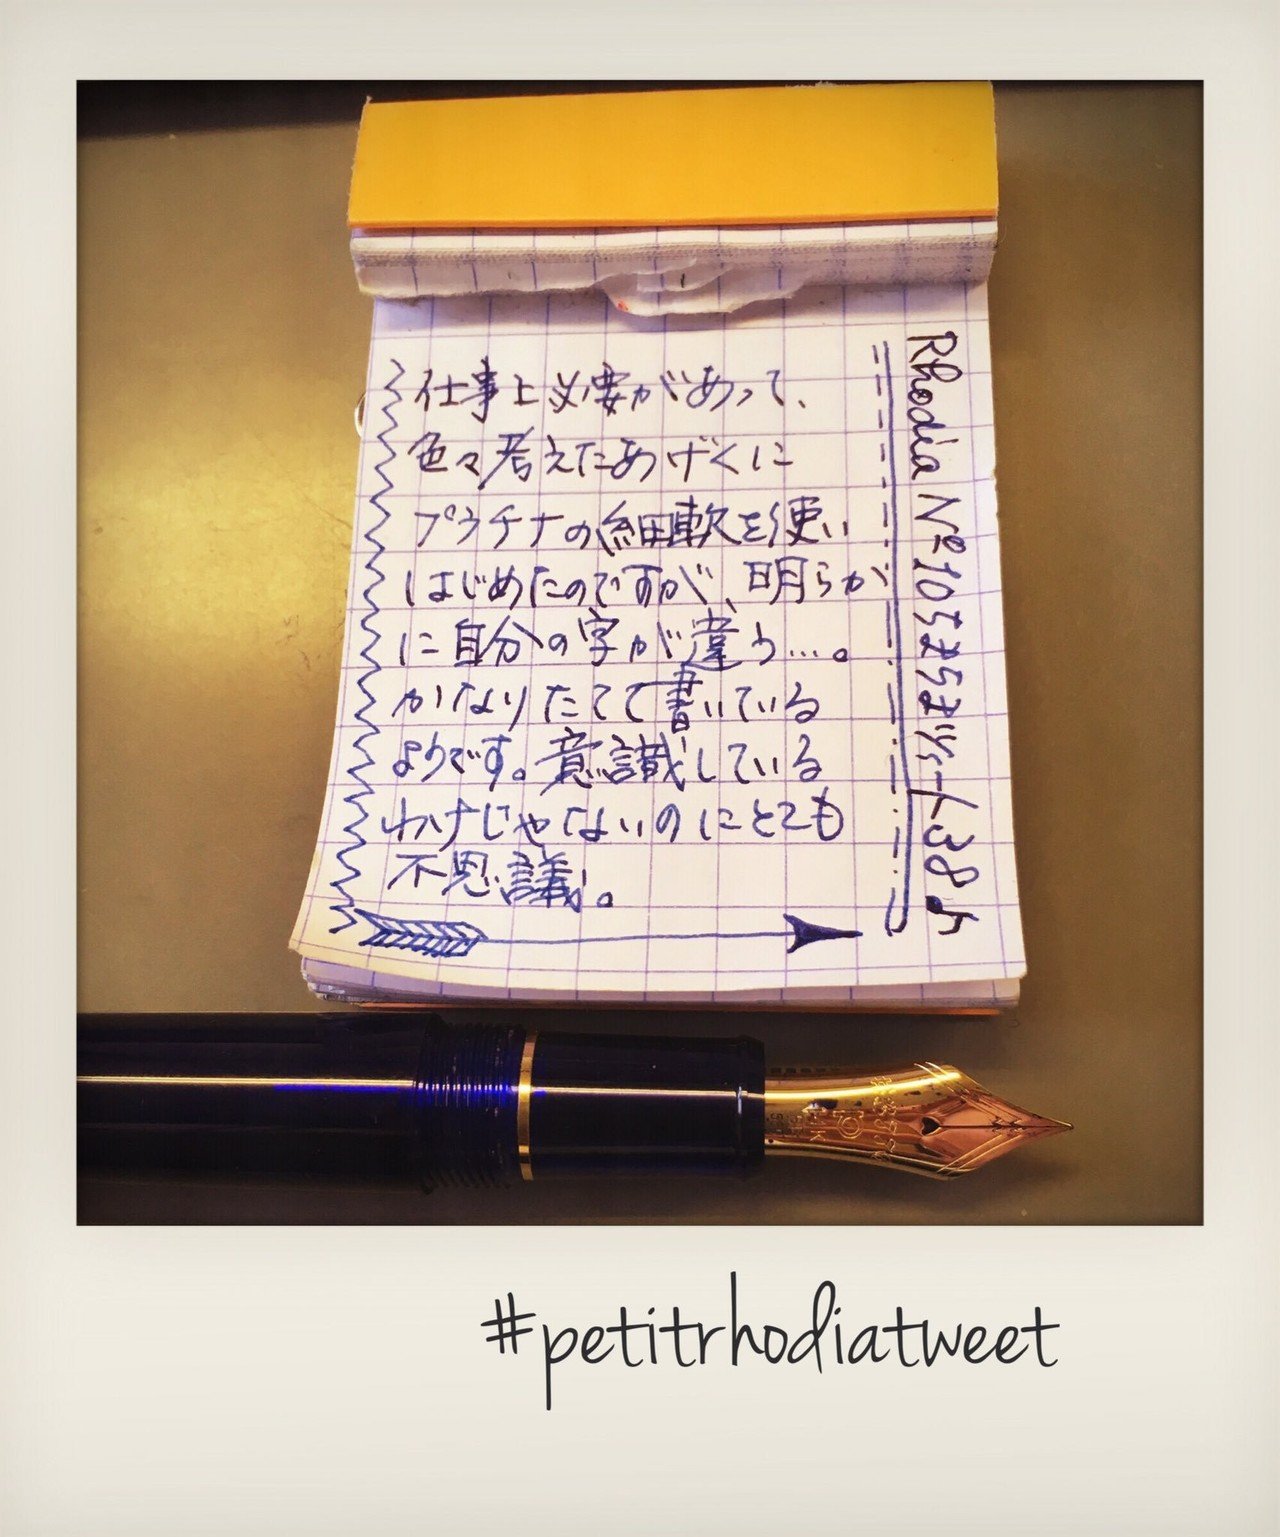 仕事上必要があって、
色々考えたあげくに
プラチナの細軟を使い
はじめたのですが、明らか
に自分の字が違う…。
かなりたてて書いている
ようです。意識している
わけじゃないのにとても
不思議。
Rhodia №10
#petitrhodiatweet